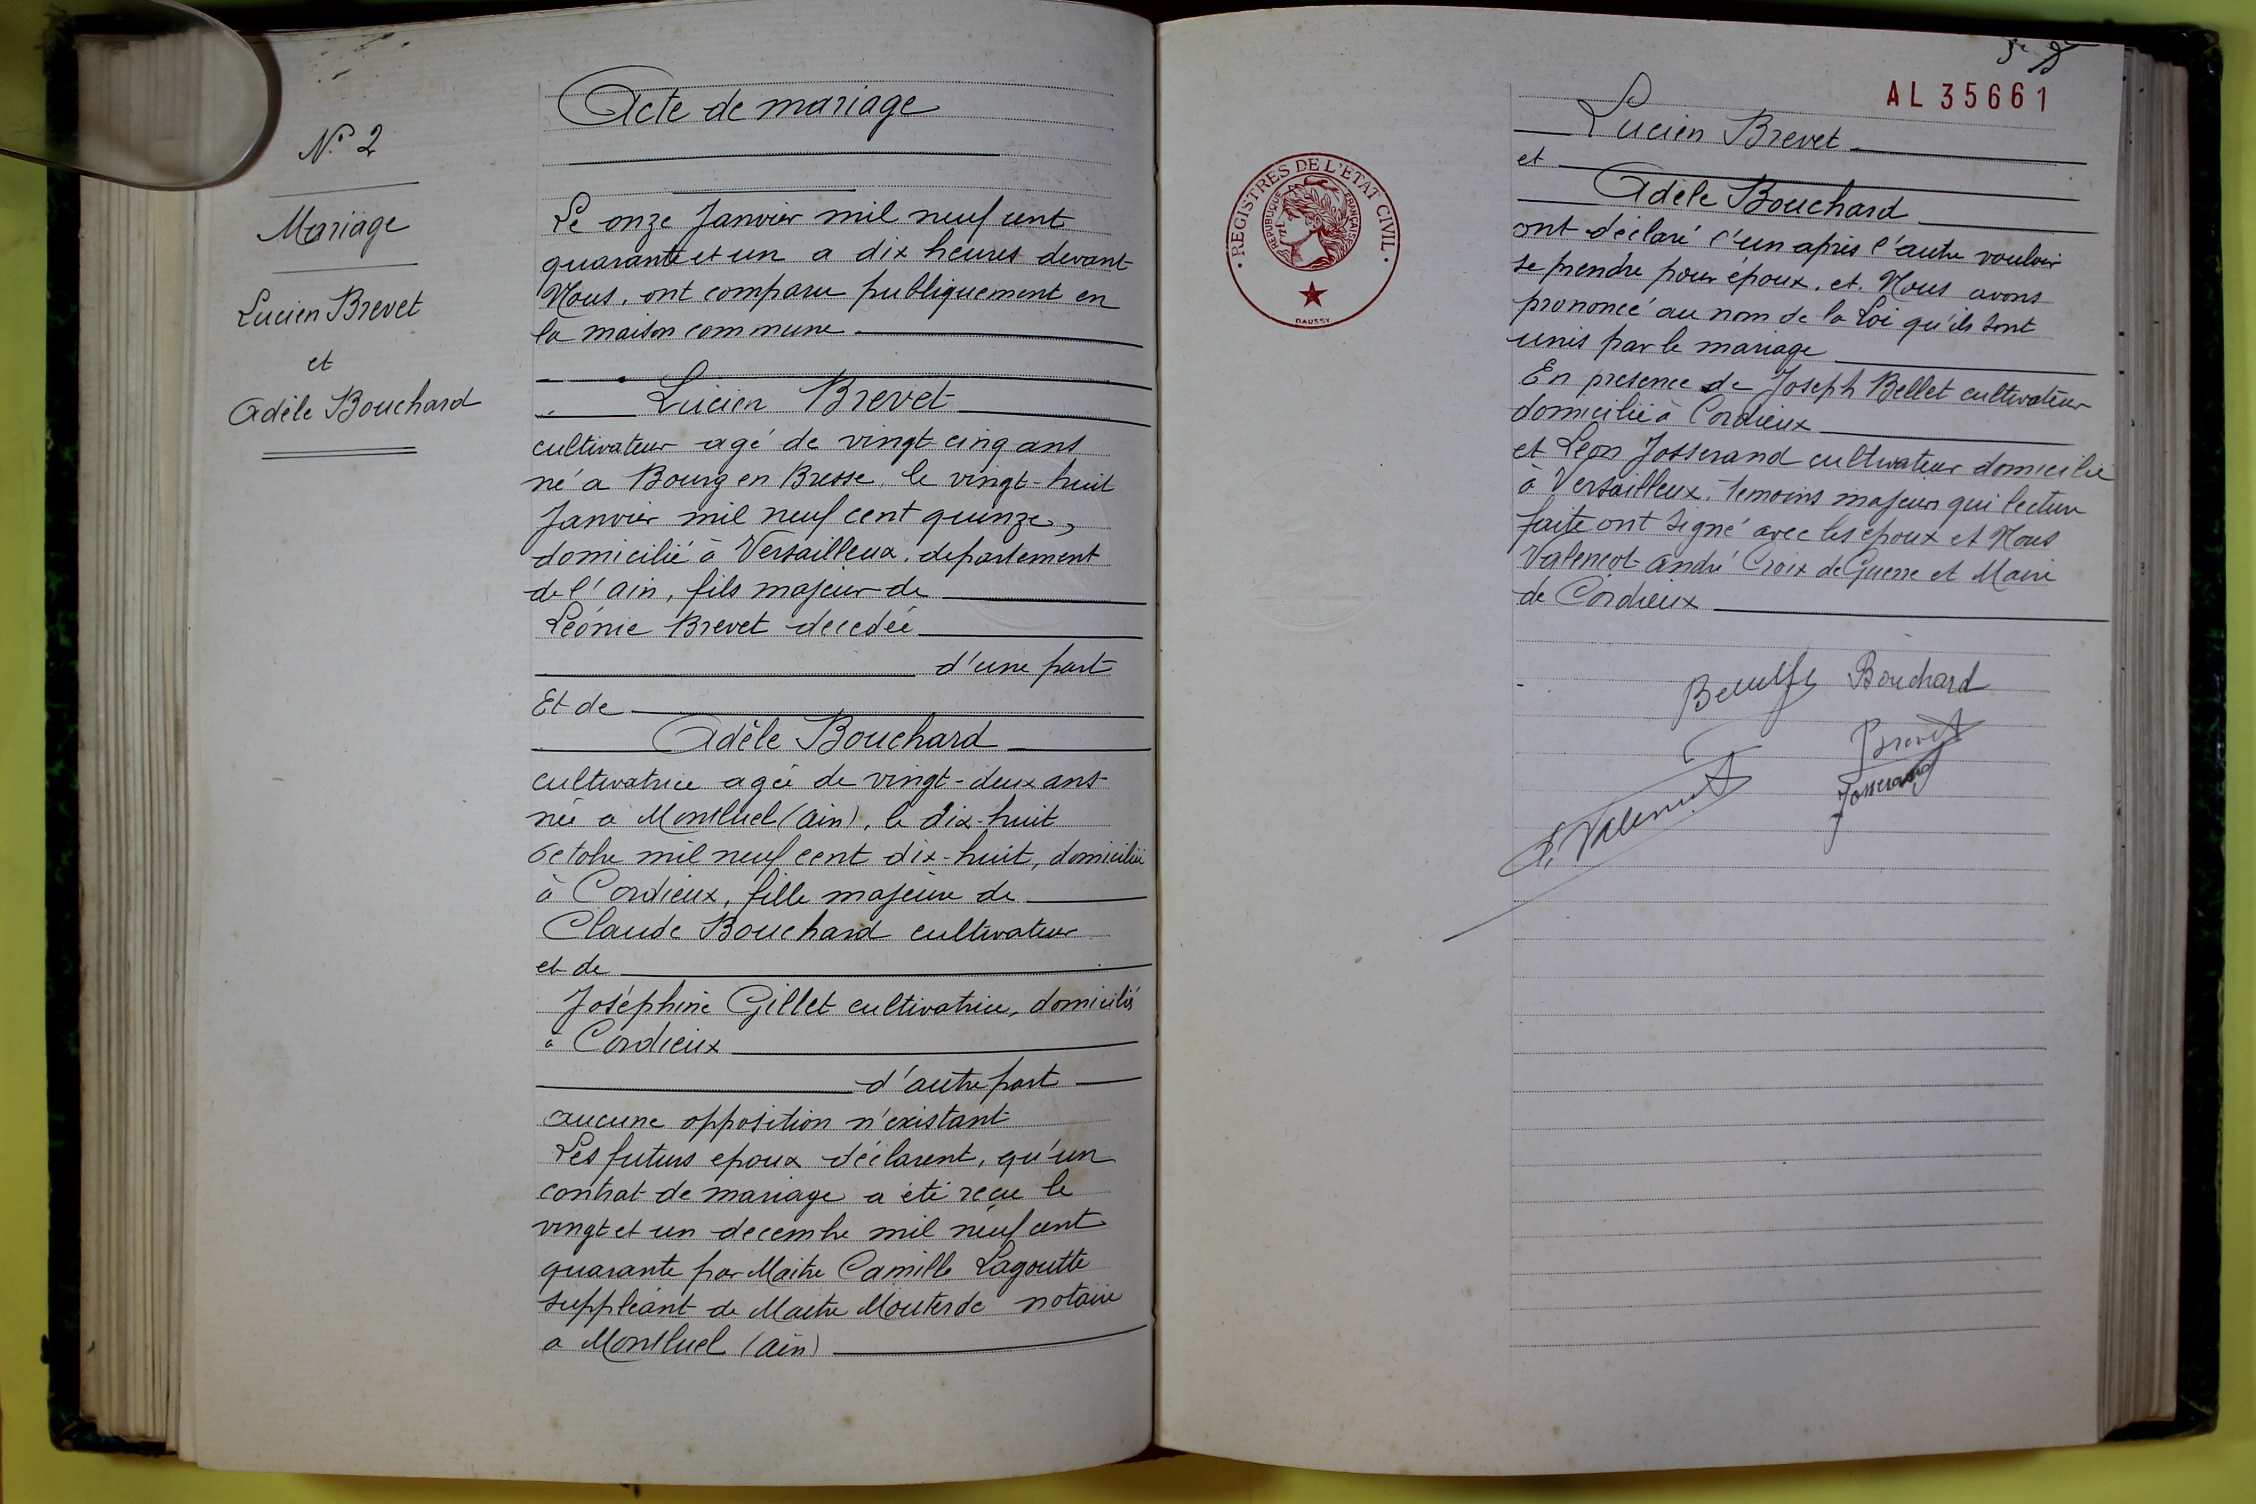 N° 2
Mariage
Lucien Brevet
et
Adèle Bouchard
Acte de mariage
Le onze Janvier mil neuf cent
quarante et un a dix heures devant
Nous, ont comparu publiquement en
la maison commune
Lucien Brevet
cultivateur agé de vingt-cinq ans
né a Bourg en Bresse, le vingt-huit
Janvier mil neuf cent quinze,
domicilié à Versailleux, departement
de l'ain, fils majeur de
Léonie Brevet decedée
d'une part
Et de
Adèle Bouchard
cultivatrice agée de vingt-deux ans
née a Montluel (ain), le dix-huit
Octobre mil neuf cent dix-huit, domiciliée
à Cordieux, fille majeure de
Claude Bouchard cultivateur
et de
Joséphine Gillet cultivatrice, domiciliés
à Cordieux
d'autre part
aucune opposition n'existant
Les futurs epoux déclarent, qu'un
contrat de mariage a été reçu le
vingt et un decembre mil neuf cent
quarante par Maitre Camille Lagoutte
suppléant de Maitre Mouterde notaire
a Montluel (ain)
AL 35661
REGISTRES DE L'ETAT CIVIL
REPUBLIQUE FRANÇAISE
DAUSSY
Lucien Brevet
et
Adèle Bouchard
ont déclaré l'un après l'autre vouloir
se prendre pour époux, et. Nous avons
prononcé au nom de la Loi qu'ils sont
unis par le mariage
En presence de Joseph Bellet cultivateur
domicilié à Cordieux
et Léon Josserand cultivateur domicilié
à Versailleux, temoins majeurs qui lecture
faite ont signé avec les epoux et Nous
Valençot andré Croix de Guerre et Maire
de Cordieux
Bouchard
Brevet
Josserand